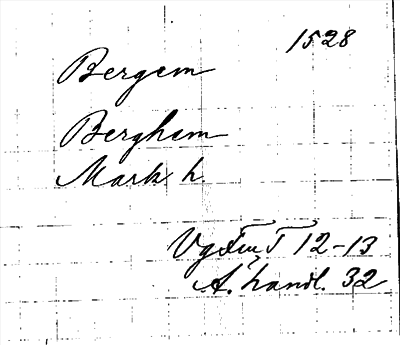 1528
Bergem
Bergham
Mark h
VgFmT 12-13
A: handl. 32